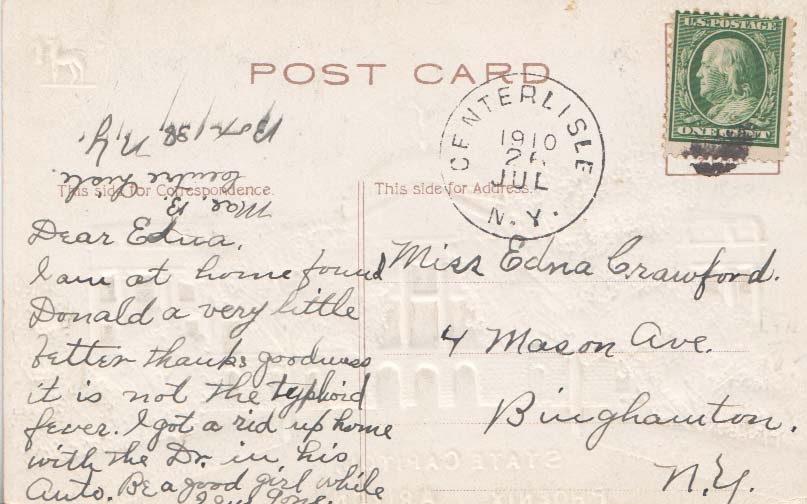 POST CARD
U.S. POSTAGE
ONE CENT
CENTERLISLE
1910
JUL
N.Y.
Box 38 N.Y.
Centre Lisle
This side for Correspondence.
This side for Address.
Dear Edna,
I am at home found
Donald a very little
better thanks goodness
it is not the typhoid
fever. I got a rid up home
with the Dr. in his
Auto. Be a good girl while
I am gone.
Miss Edna Crawford.
4 Mason Ave.
Binghamton.
N.Y.
STATE CAPITOL
PHOENIX